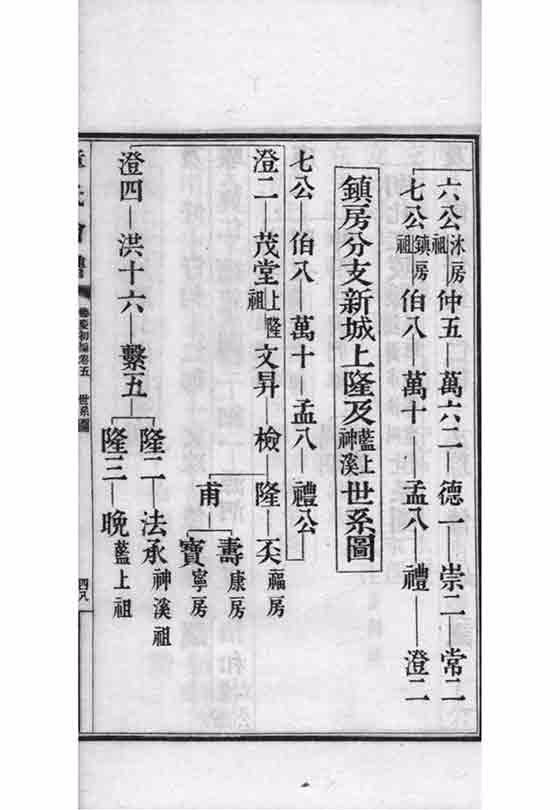 六公沐房祖仲五萬六二德一崇二常二
七公鎮房祖伯八萬十孟八禮澄二
鎮房分支新城上隆及藍上神溪世系圖
七公伯八萬十孟八禮公
澄二茂堂上隆祖文昇檢隆丕福房
甫壽康房
寶寧房
澄四洪十六繫五隆二法承神溪祖
隆三晚藍上祖
初編卷五 世系圖 四八